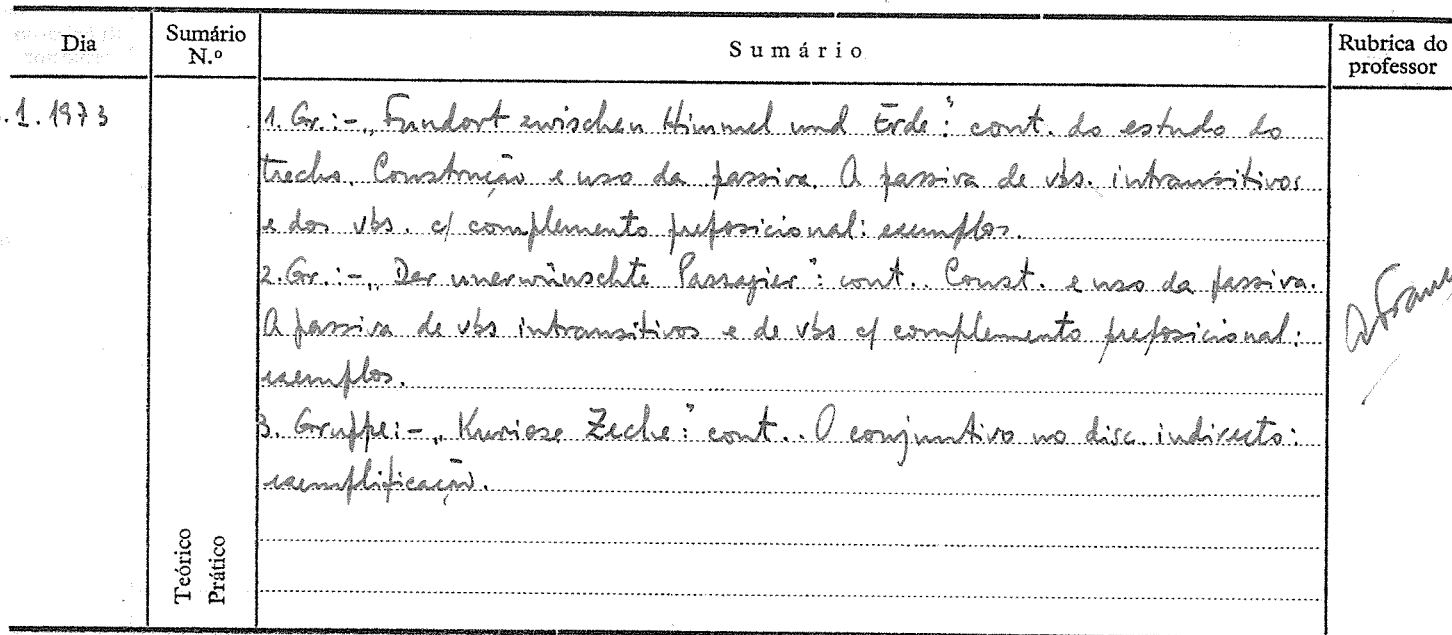 Dia
Sumário N.º
Sumário
Rubrica do professor
.1.1973
1. Gr.:- „Fundort zwischen Himmel und Erde": cont. do estudo do
trecho. Construção e uso da passiva. A passiva de vbs. intransitivos
e dos vbs. c/ complemento preposicional: exemplos.
2. Gr.:- „Der unerwünschte Passagier": cont.. Const. e uso da passiva.
A passiva de vbs intransitivos e de vbs c/ complemento preposicional:
exemplos.
3. Gruppe:- „Kuriose Zeche": cont.. O conjuntivo no disc. indirecto:
exemplificação.
Teórico
Prático